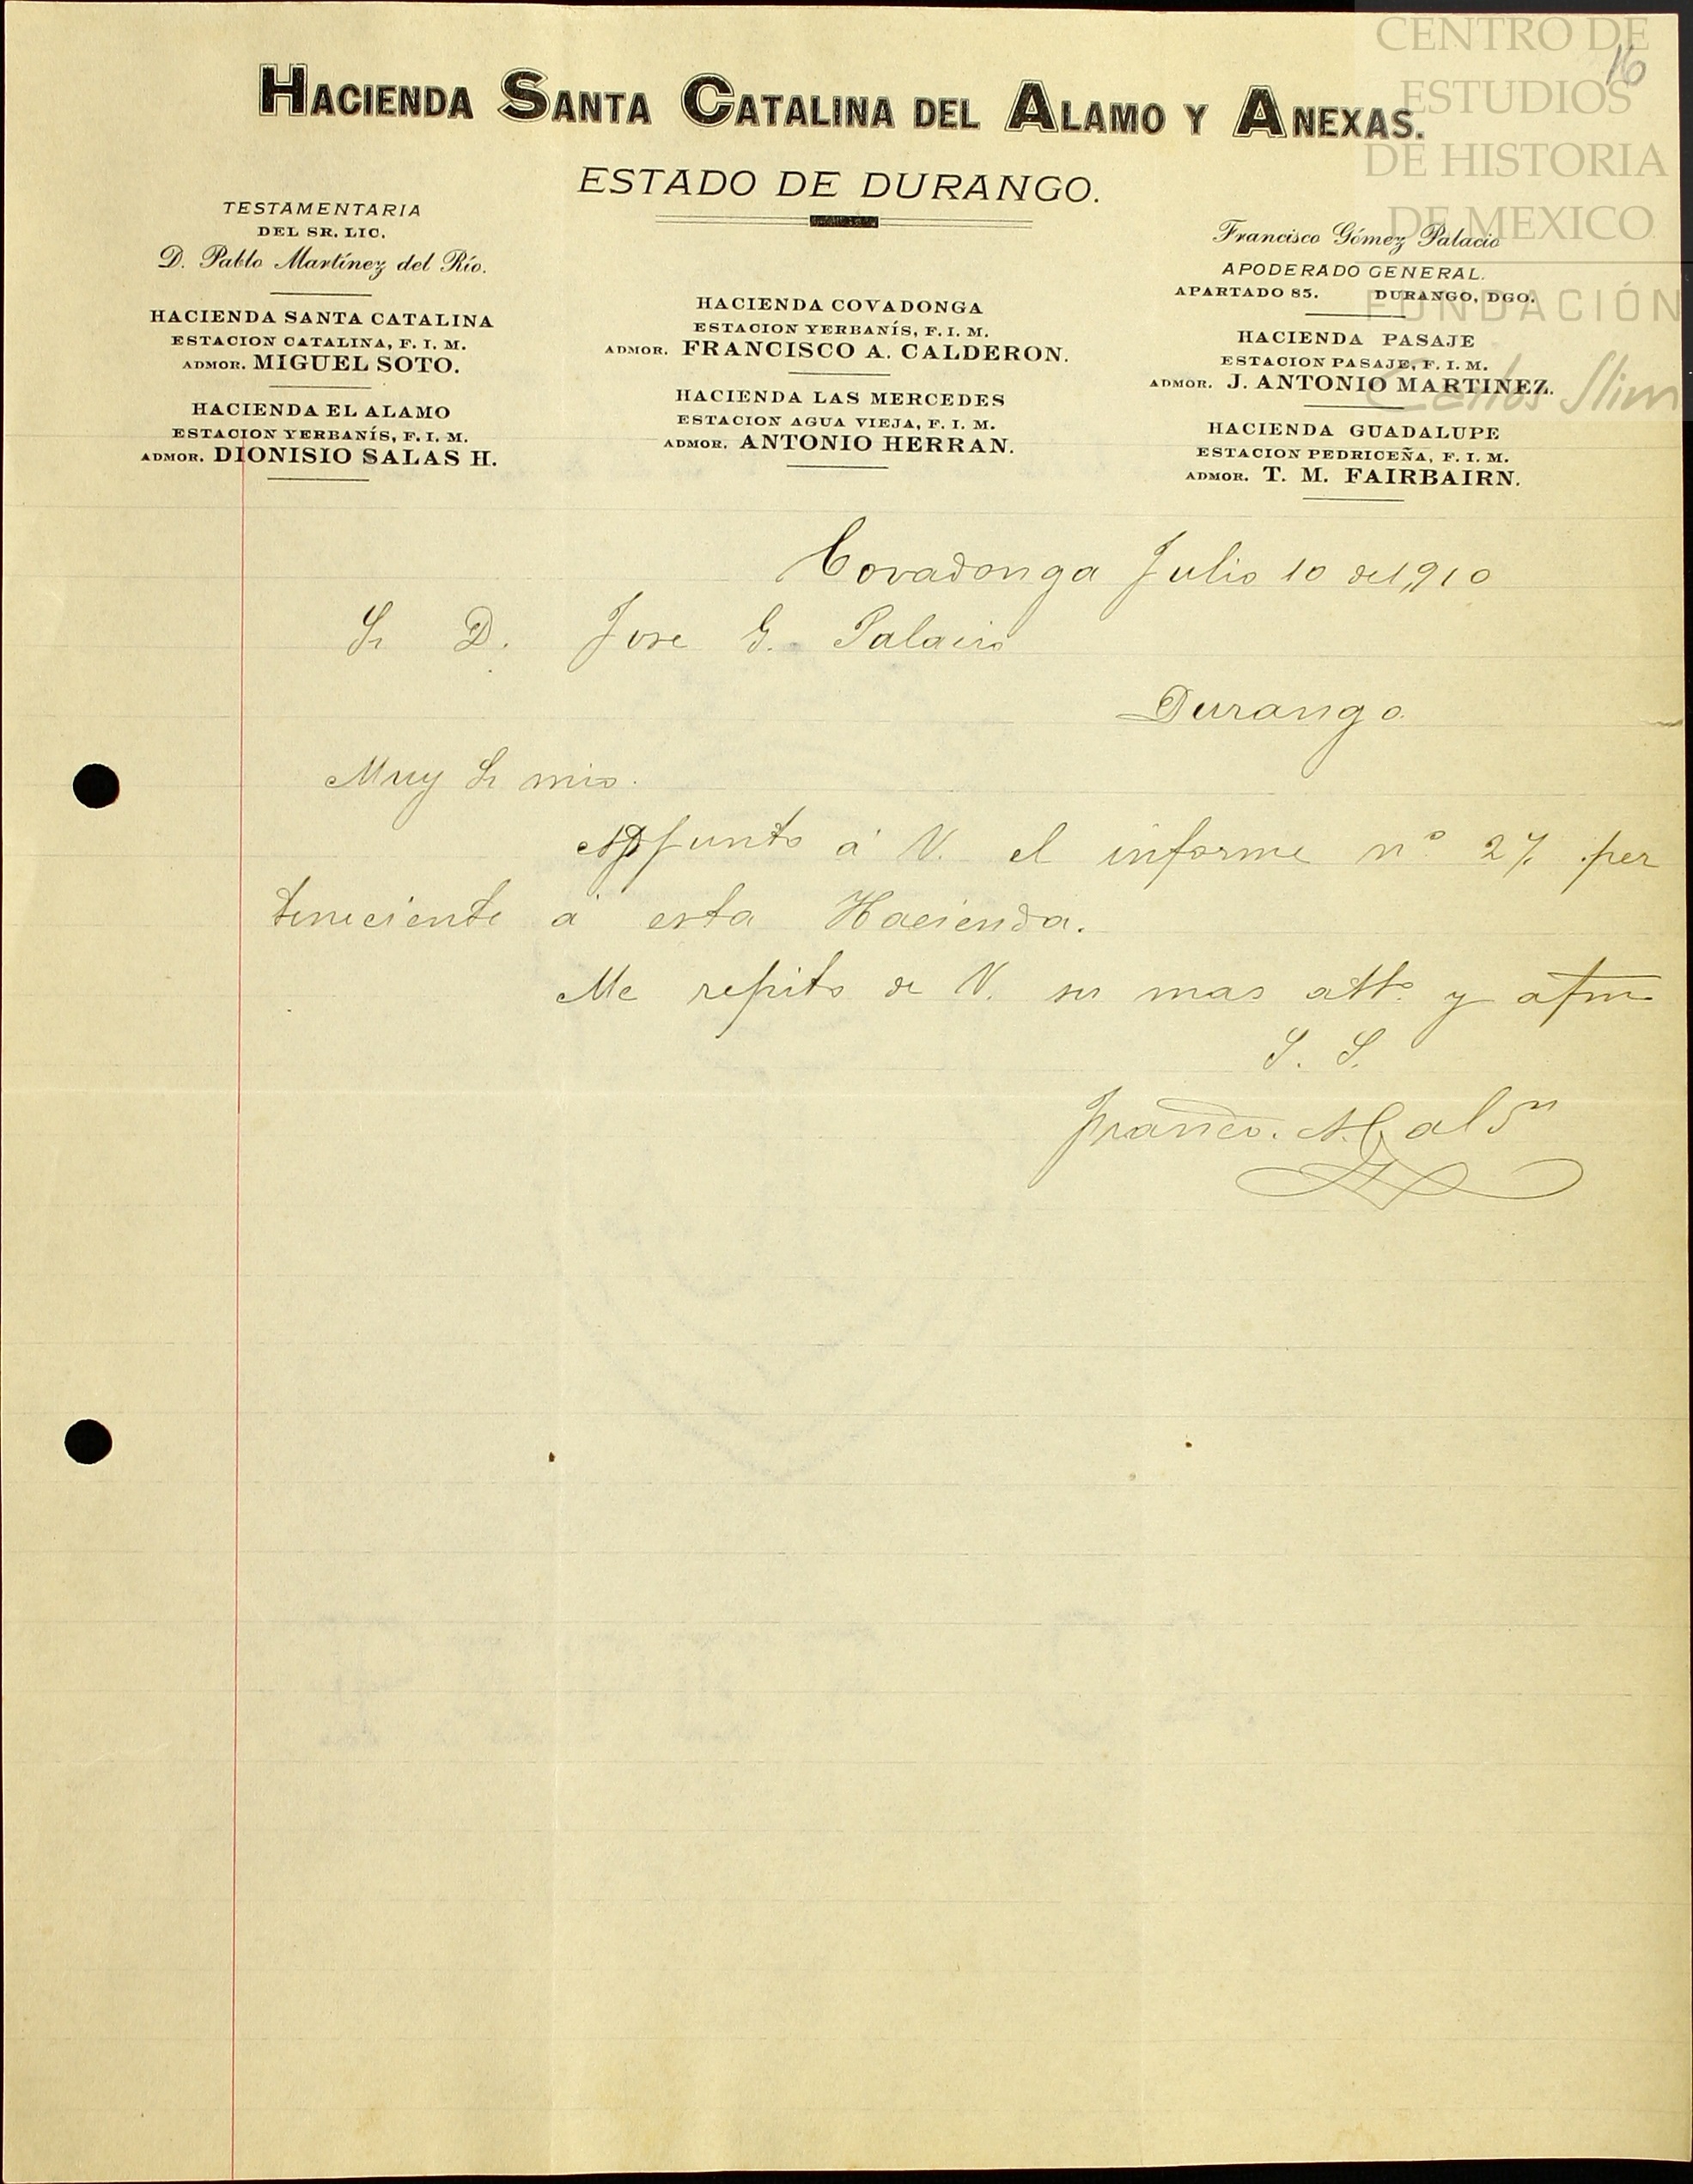 CENTRO DE
ESTUDIOS
DE HISTORIA
DE MEXICO
FUNDACIÓN
Carlos Slim
16
HACIENDA SANTA CATALINA DEL ALAMO Y ANEXAS.
ESTADO DE DURANGO.
TESTAMENTARIA
DEL SR. LIC.
D. Pablo Martínez del Río.
HACIENDA SANTA CATALINA
ESTACION CATALINA, F. I. M.
ADMOR. MIGUEL SOTO.
HACIENDA EL ALAMO
ESTACION YERBANÍS, F. I. M.
ADMOR. DIONISIO SALAS H.
HACIENDA COVADONGA
ESTACION YERBANÍS, F. I. M.
ADMOR. FRANCISCO A. CALDERON.
HACIENDA LAS MERCEDES
ESTACION AGUA VIEJA, F. I. M.
ADMOR. ANTONIO HERRAN.
Francisco Gómez Palacio
APODERADO GENERAL.
APARTADO 85. DURANGO, DGO.
HACIENDA PASAJE
ESTACION PASAJE, F. I. M.
ADMOR. J. ANTONIO MARTINEZ.
HACIENDA GUADALUPE
ESTACION PEDRICEÑA, F. I. M.
ADMOR. T. M. FAIRBAIRN.
Covadonga Julio 10 de 1,910
Sr D. Jose G. Palacio
Durango.
Muy Sr mio.
Adjunto á V. el informe nº 27. per
teneciente á esta Hacienda.
Me repito de V. su mas attº y afmo
S. S.
Franco. A. Calon